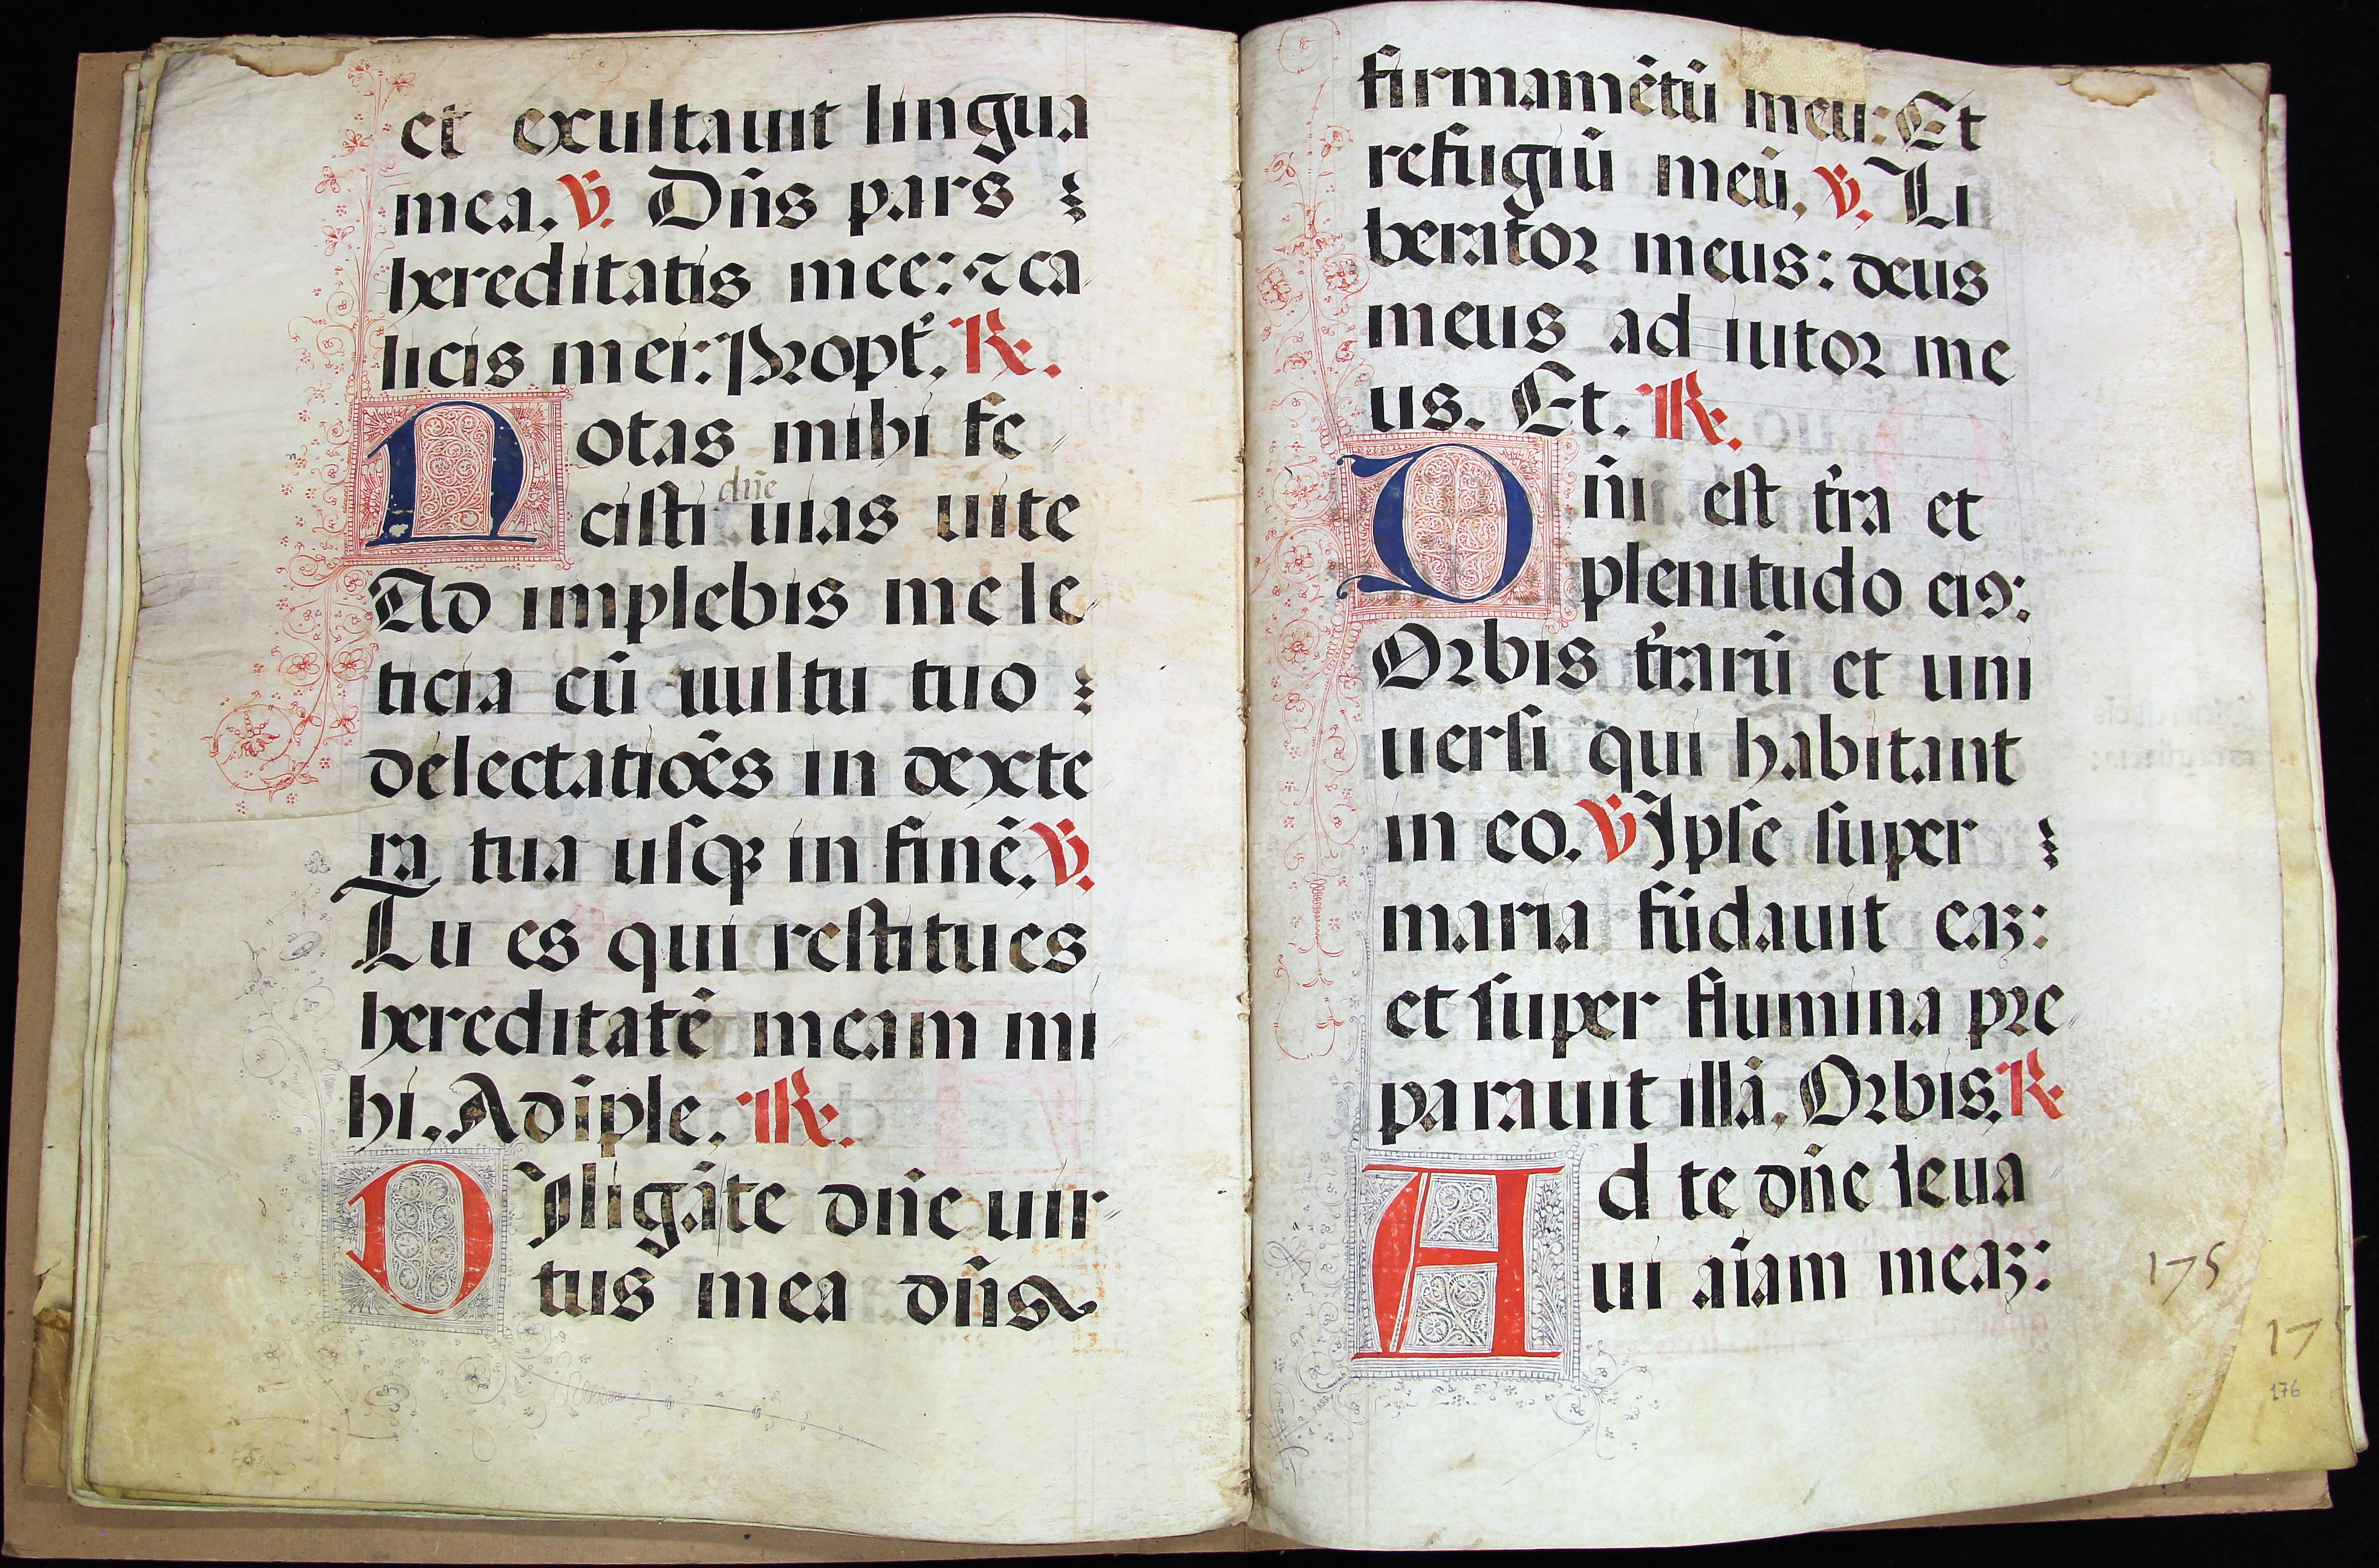 et exultauit lingua
mea. ℣. Dn̄s pars
hereditatis mee: ⁊ ca
licis mei: Propt̄. ℟.
Notas mihi fe
cisti dn̄e uias uite
Ad implebis me le
ticia cū uultu tuo
delectatiōēs in dexte
ra tua usqꝫ in finē. ℣.
Tu es qui restitues
hereditatē meam mi
hi. Adīple. ℟.
DIligā te dn̄e uir
tus mea dn̄s
firmamētū meū: Et
refugiū meū. ℣. Li
berator meus: deus
meus ad iutor me
us. Et. ℟.
Dn̄i est t̄ra et
plenitudo eiꝰ:
Orbis t̄rarū et uni
uersi qui habitant
in eo. ℣ Ipse super
maria fūdauit eaꝫ:
et super flumina pre
parauit illā. Orbis. ℟
Ad te dn̄e leua
ui aīam meaꝫ:
175
17
176